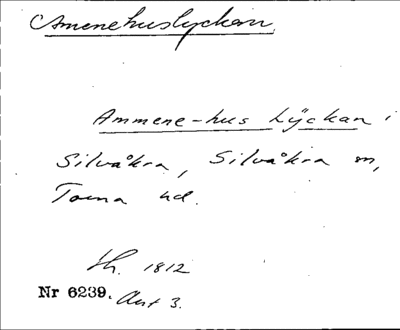 Amenehuslyckan
Ammene-hus Lÿckan i
Silvåkra, Silvåkra sn,
Torna hd.
Sh. 1812
Nr 6239. Akt 3.